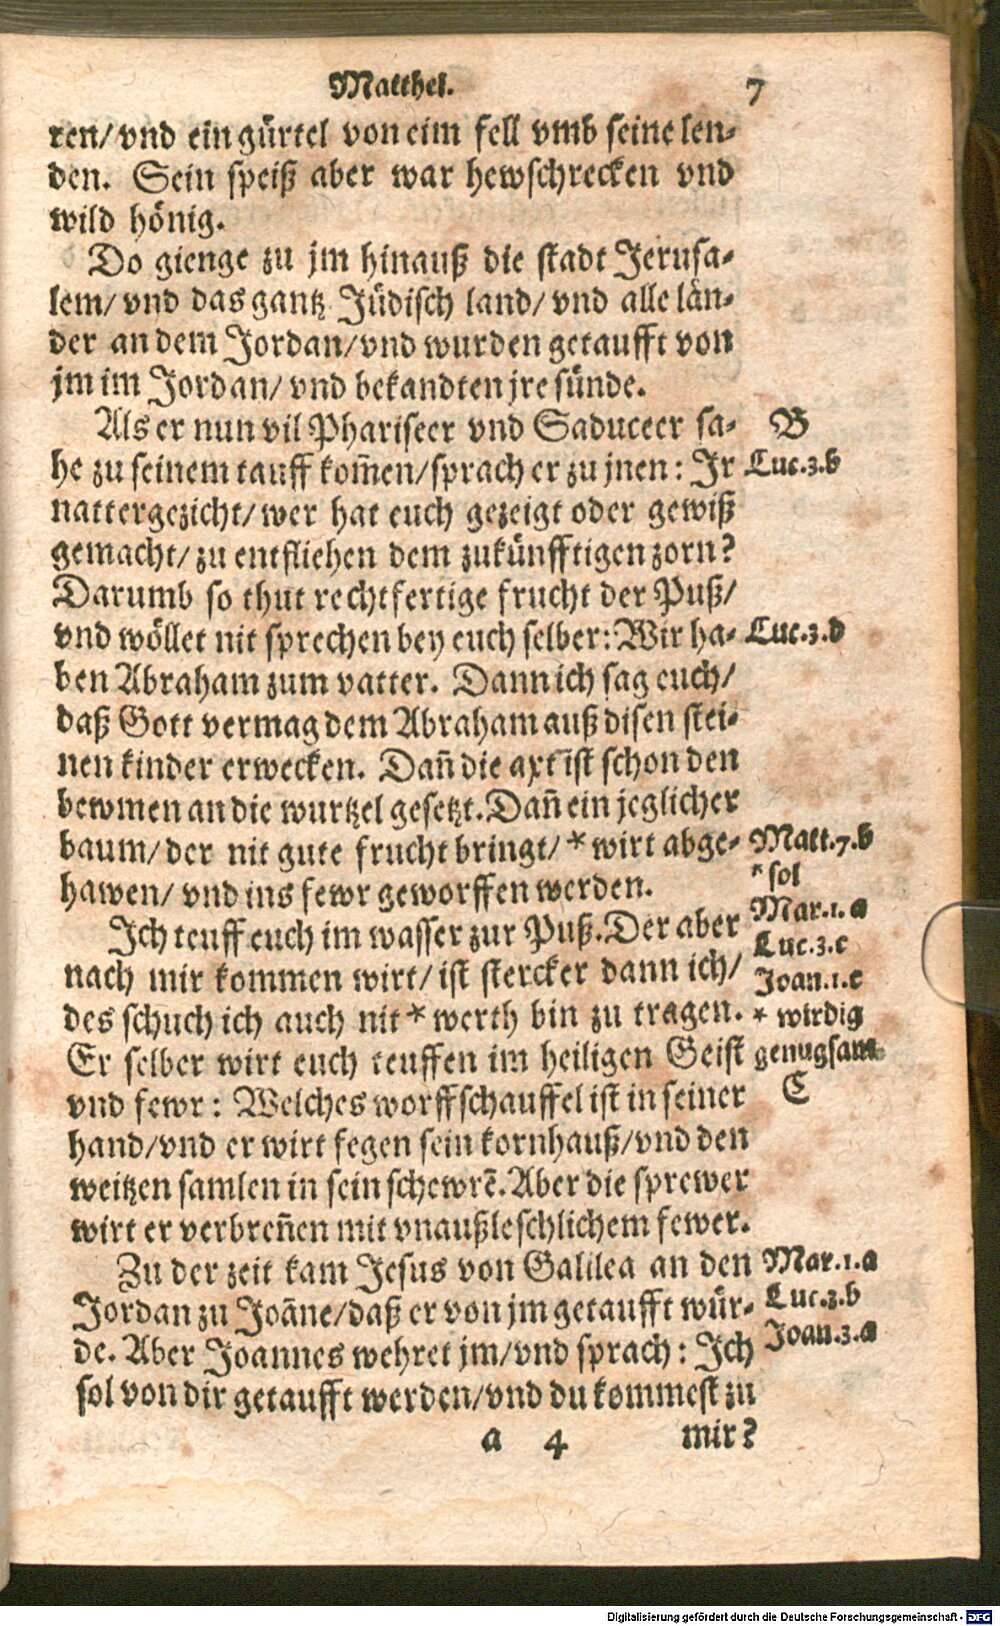 Matthei. 7
ren/ vnd ein gürtel von eim fell vmb seine len⸗
den. Sein speiß aber war hewschrecken vnd
wild hönig.
Do gienge zu jm hinauß die stadt Jerusa⸗
lem/ vnd das gantz Jüdisch land/ vnd alle län⸗
der an dem Jordan/ vnd wurden getaufft von
jm im Jordan/ vnd bekandten jre sünde.
Als er nun vil Phariseer vnd Saduceer sa⸗ B
he zu seinem tauff kom̃en/ sprach er zu jnen: Ir Luc.3.b
nattergezicht/ wer hat euch gezeigt oder gewiß
gemacht/ zu entfliehen dem zukünfftigen zorn?
Darumb so thut rechtfertige frucht der Puß/
vnd wöllet nit sprechen bey euch selber: Wir ha⸗ Luc.3.d
ben Abraham zum vatter. Dann ich sag euch/
daß Gott vermag dem Abraham auß disen stei⸗
nen kinder erwecken. Dañ die axt ist schon den
bewmen an die wurtzel gesetzt. Dañ ein jeglicher
baum/ der nit gute frucht bringt/ * wirt abge⸗ Matt.7.b
hawen/ vnd ins fewr geworffen werden. * sol
Ich teuff euch im wasser zur Puß. Der aber Mar.1.a
Luc.3.c
nach mir kommen wirt/ ist stercker dann ich/ Joan.1.c
des schuch ich auch nit * werth bin zu tragen. * wirdig
Er selber wirt euch teuffen im heiligen Geist genugsam
vnd fewr: Welches worffschauffel ist in seiner C
hand/ vnd er wirt fegen sein kornhauß/ vnd den
weitzen samlen in sein schewrẽ. Aber die sprewer
wirt er verbreñen mit vnaußleschlichem fewer.
Zu der zeit kam Jesus von Galilea an den Mar.1.a
Jordan zu Joãne/ daß er von jm getaufft wür⸗ Luc.3.b
de. Aber Joannes wehret jm/ vnd sprach: Ich Joan.3.a
sol von dir getaufft werden/ vnd du kommest zu
a 4 mir?
Digitalisierung gefördert durch die Deutsche Forschungsgemeinschaft - DFG